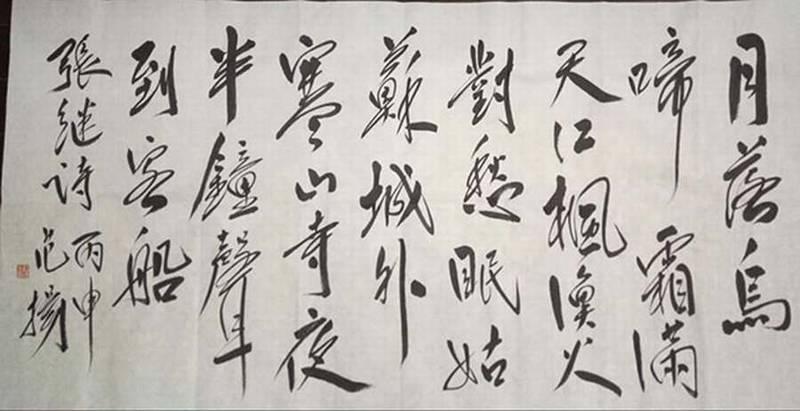 月落烏
啼霜滿
天江楓漁火
對愁眠姑
蘇城外
寒山寺夜
半鐘聲
到客船
張继诗
丙申
范揚